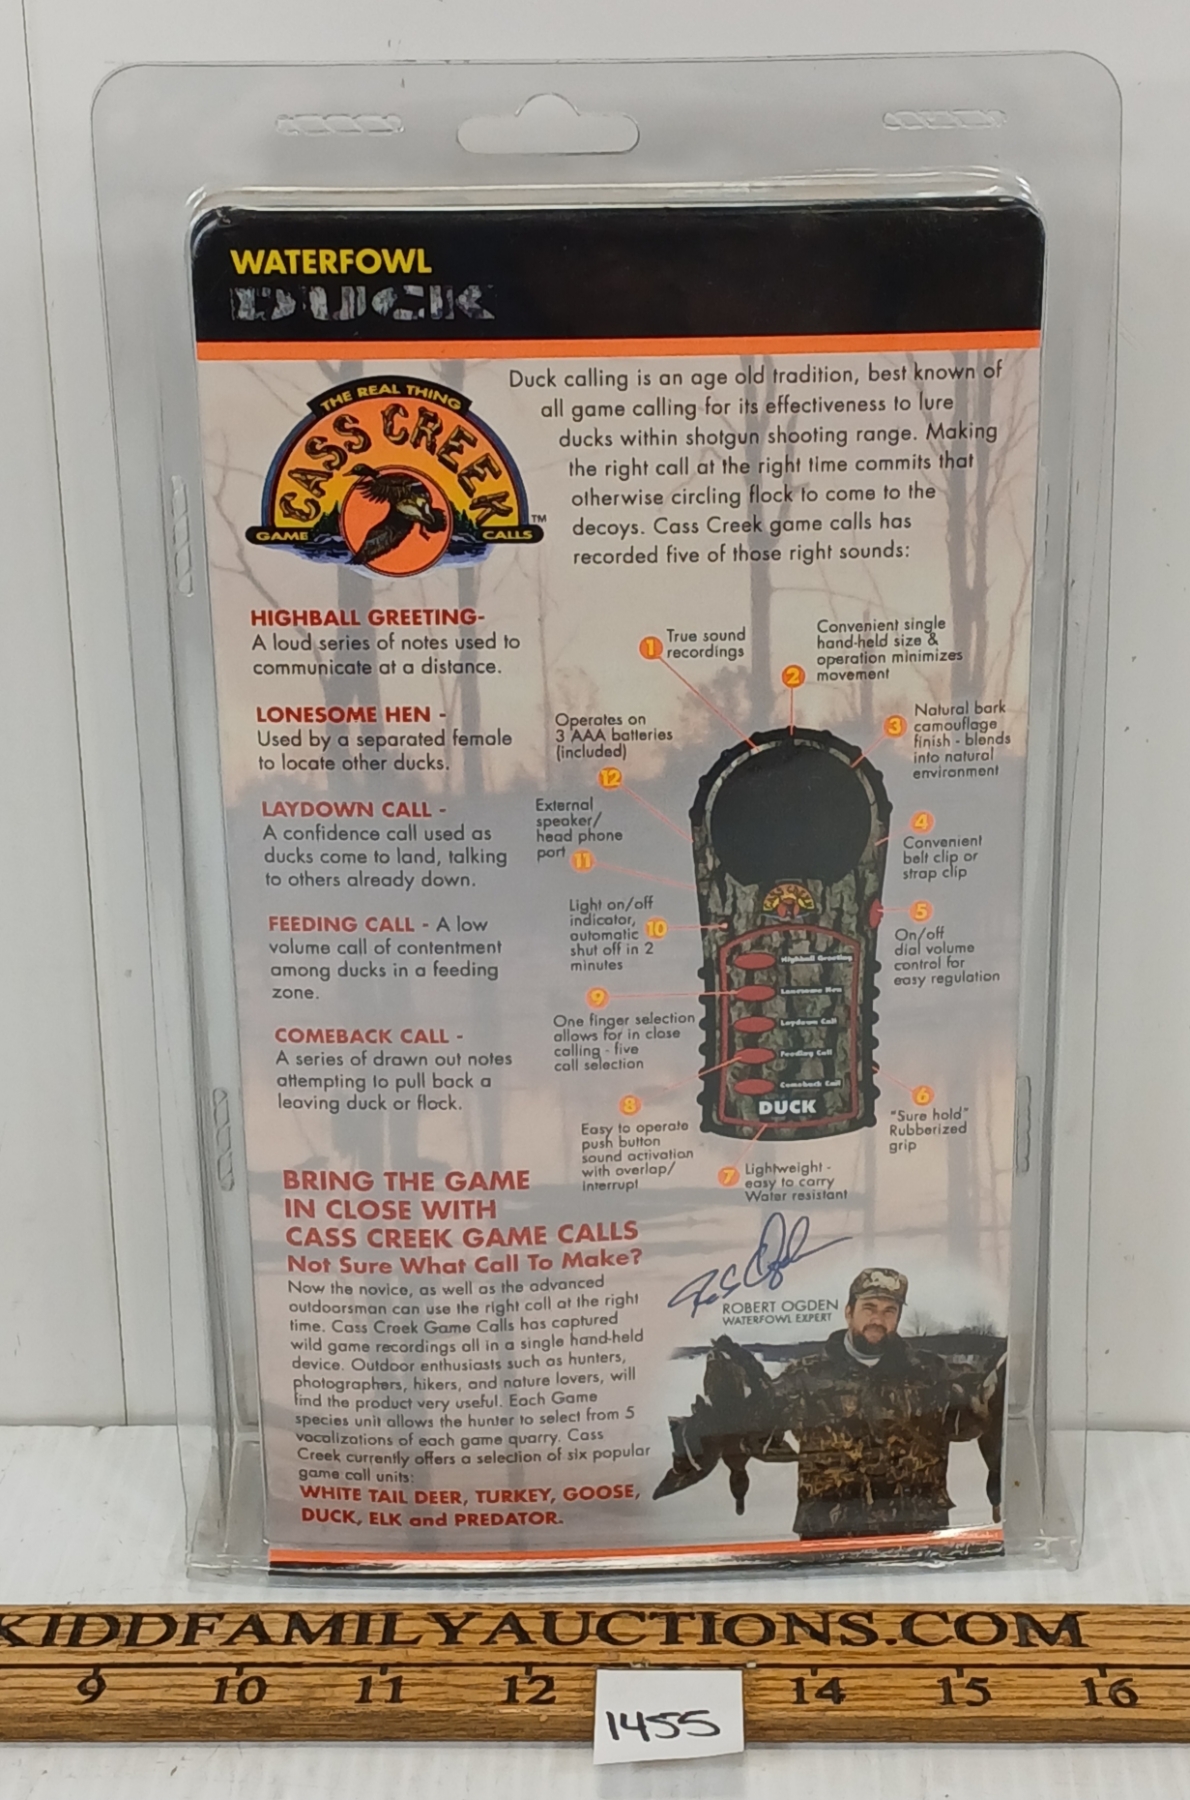 WATERFOWL
DUCK
THE REAL THING
CASS CREEK
GAME CALLS
TM
Duck calling is an age old tradition, best known of
all game calling for its effectiveness to lure
ducks within shotgun shooting range. Making
the right call at the right time commits that
otherwise circling flock to come to the
decoys. Cass Creek game calls has
recorded five of those right sounds:
HIGHBALL GREETING-
A loud series of notes used to
communicate at a distance.
LONESOME HEN -
Used by a separated female
to locate other ducks.
LAYDOWN CALL -
A confidence call used as
ducks come to land, talking
to others already down.
FEEDING CALL - A low
volume call of contentment
among ducks in a feeding
zone.
COMEBACK CALL -
A series of drawn out notes
attempting to pull back a
leaving duck or flock.
1
True sound
recordings
2
Convenient single
hand-held size &
operation minimizes
movement
3
Natural bark
camouflage
finish - blends
into natural
environment
4
Convenient
belt clip or
strap clip
5
On/off
dial volume
control for
easy regulation
6
"Sure hold"
Rubberized
grip
7
Lightweight -
easy to carry
Water resistant
8
Easy to operate
push button
sound activation
with overlap/
Interrupt
9
One finger selection
allows for in close
calling - five
call selection
10
Light on/off
indicator,
automatic
shut off in 2
minutes
11
External
speaker/
head phone
port
12
Operates on
3 AAA batteries
(included)
CASS CREEK
Highball Greeting
Lonesome Hen
Laydown Call
Feeding Call
Comeback Call
DUCK
BRING THE GAME
IN CLOSE WITH
CASS CREEK GAME CALLS
Not Sure What Call To Make?
Now the novice, as well as the advanced
outdoorsman can use the right call at the right
time. Cass Creek Game Calls has captured
wild game recordings all in a single hand-held
device. Outdoor enthusiasts such as hunters,
photographers, hikers, and nature lovers, will
find the product very useful. Each Game
species unit allows the hunter to select from 5
vocalizations of each game quarry. Cass
Creek currently offers a selection of six popular
game call units:
WHITE TAIL DEER, TURKEY, GOOSE,
DUCK, ELK and PREDATOR.
ROBERT OGDEN
WATERFOWL EXPERT
KIDDFAMILYAUCTIONS.COM
9 10 11 12 14 15 16
1455